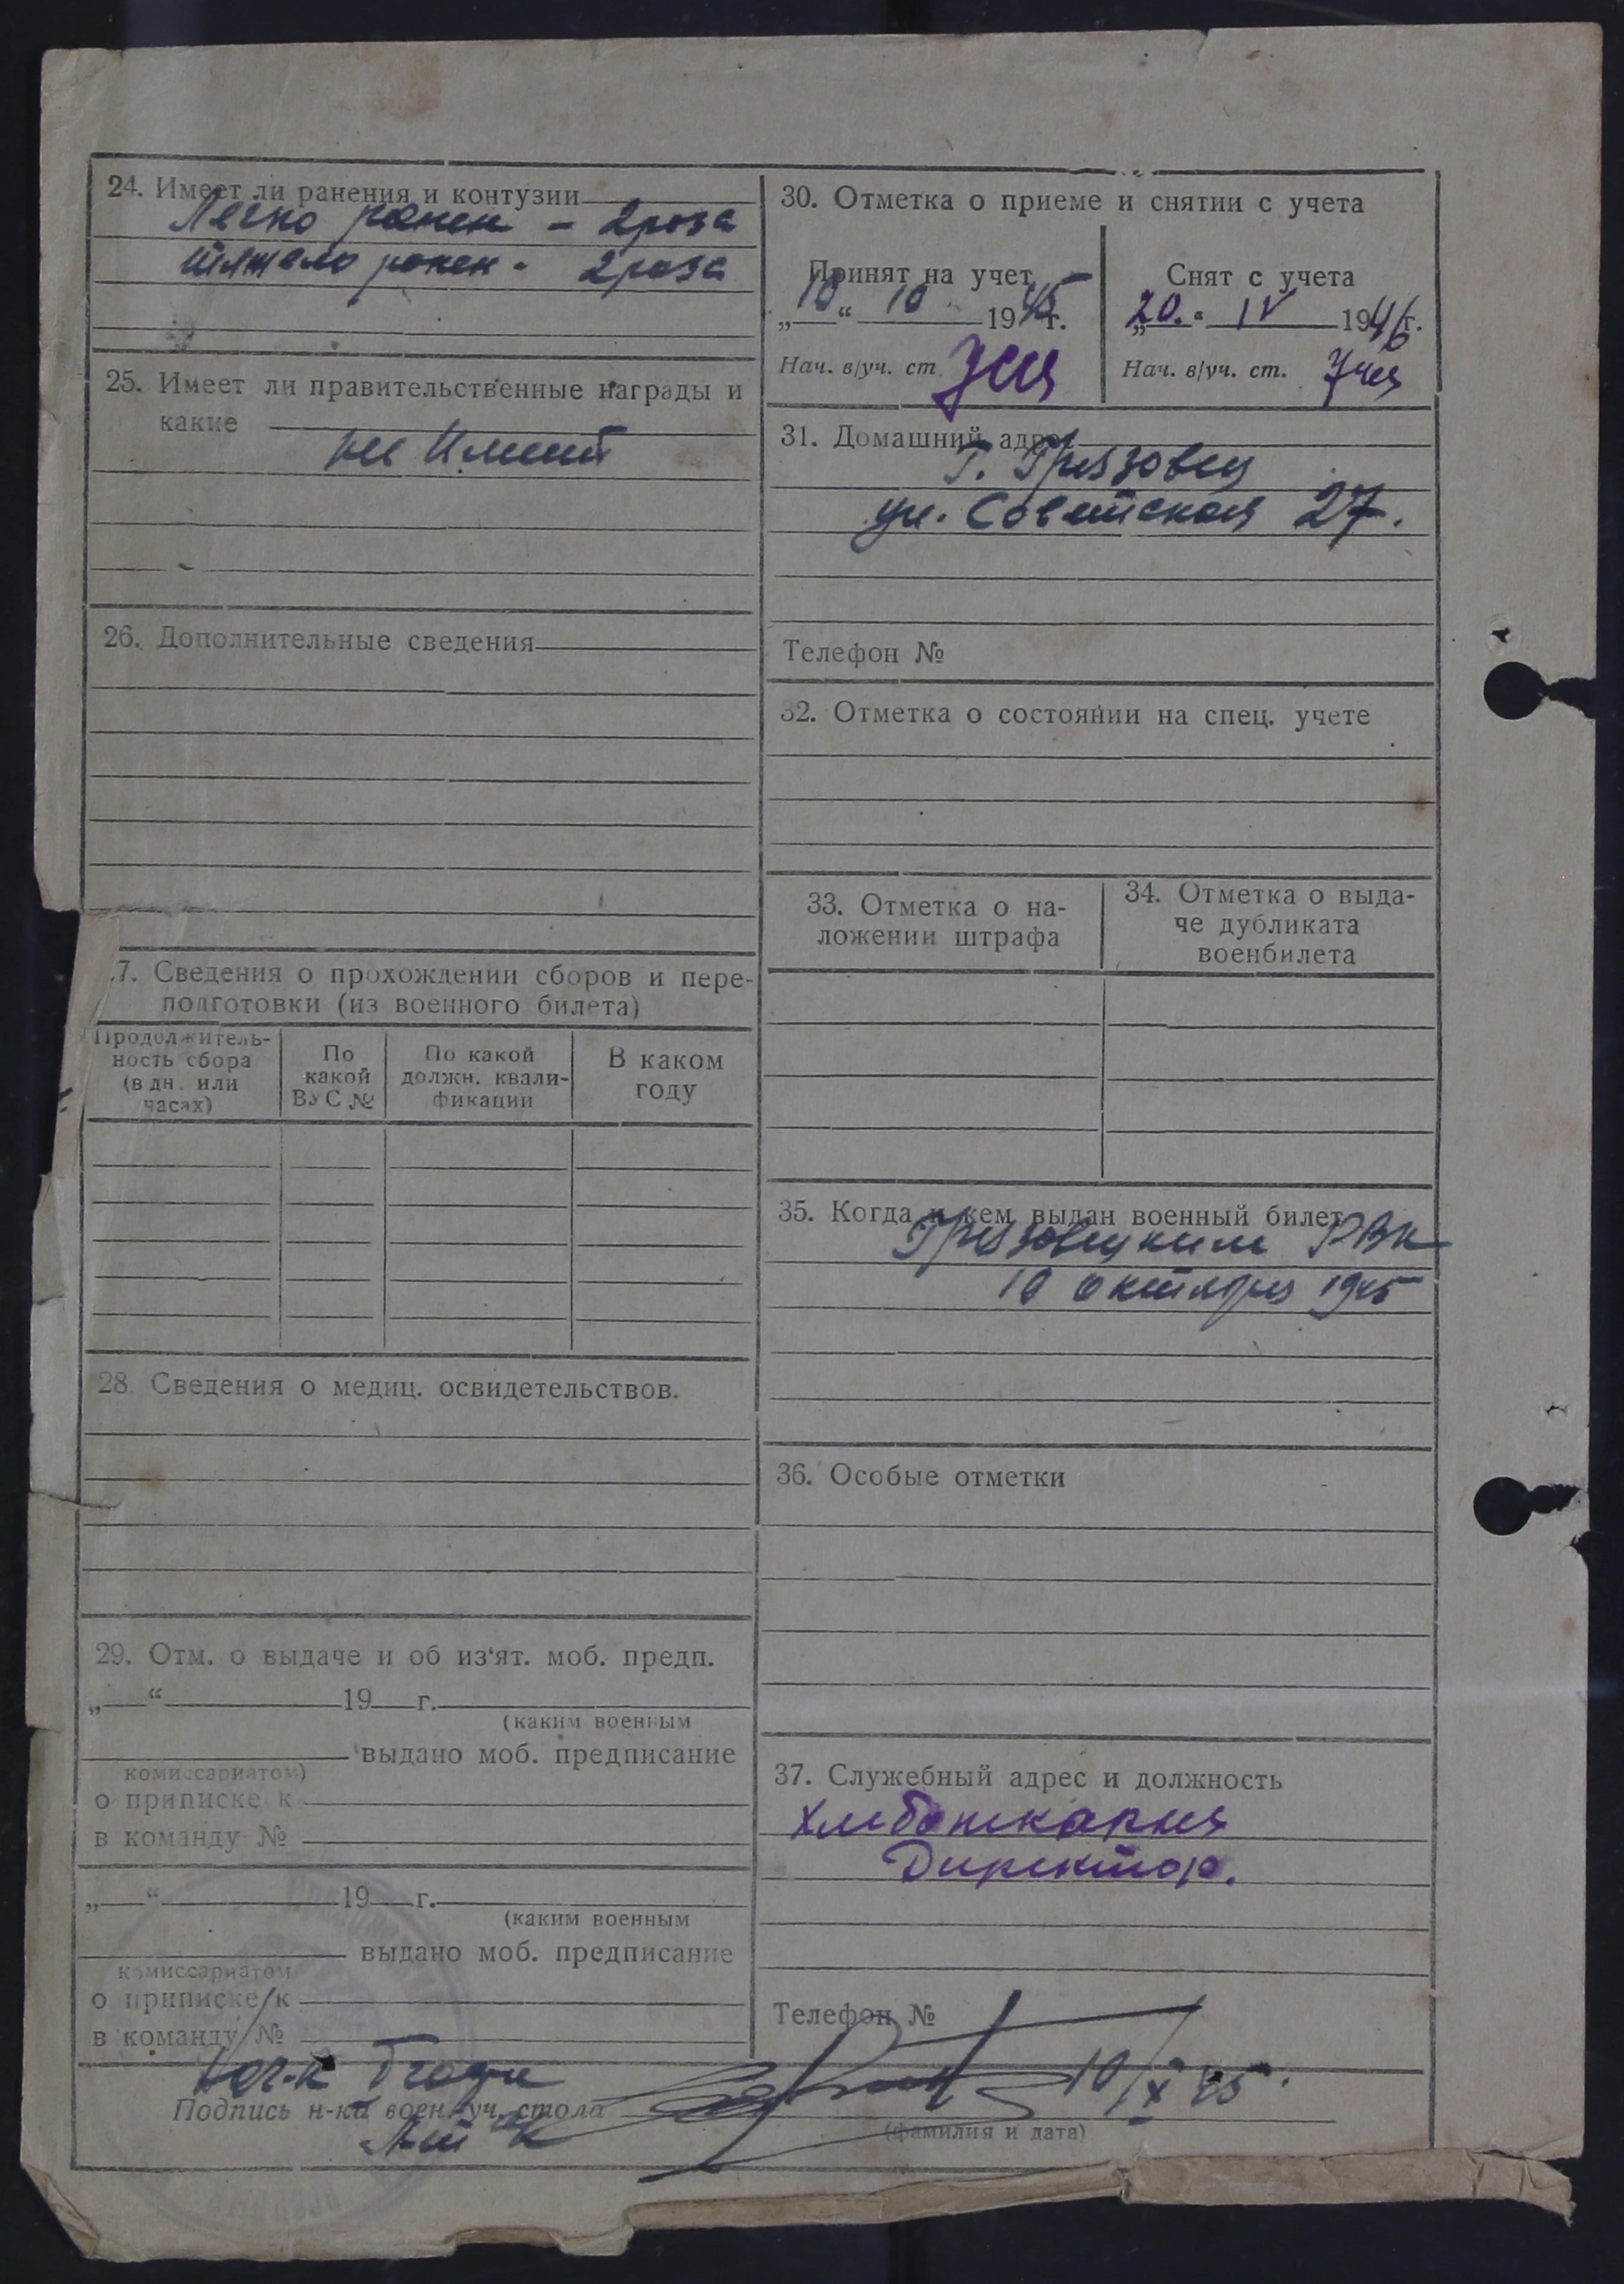 24. Имеет ли ранения и контузии
Легко ранен - 2 раза
тяжело ранен - 2 раза
25. Имеет ли правительственные награды и
какие
не имеет
26. Дополнительные сведения
7. Сведения о прохождении сборов и пере-
подготовки (из военного билета)
Продолжитель-
ность сбора
(в дн. или
часах)
По
какой
ВУС №
По какой
должн. квали-
фикации
В каком
году
28 Сведения о медиц. освидетельствов.
29. Отм. о выдаче и об из'ят. моб. предп.
„ “ 19 г.
(каким военным
выдано моб. предписание
комиссариатом)
о приписке к
в команду №
„ “ 19 г.
(каким военным
выдано моб. предписание
комиссариатом
о приписке к
в команду №
30. Отметка о приеме и снятии с учета
Принят на учет
„10“ 10 1945 г.
Нач. в/уч. ст.
Снят с учета
„20.“ IV 1946 г.
Нач. в/уч. ст.
31. Домашний адрес
г. Грязовец
ул. Советская 27.
Телефон №
32. Отметка о состоянии на спец. учете
33. Отметка о на-
ложении штрафа
34. Отметка о выда-
че дубликата
военбилета
35. Когда и кем выдан военный билет
Грязовецким РВК
10 октября 1945
36. Особые отметки
37. Служебный адрес и должность
Хлебопекарня
Директор.
Телефон №
10/X 45
Подпись н-ка воен. уч. стола
(фамилия и дата)